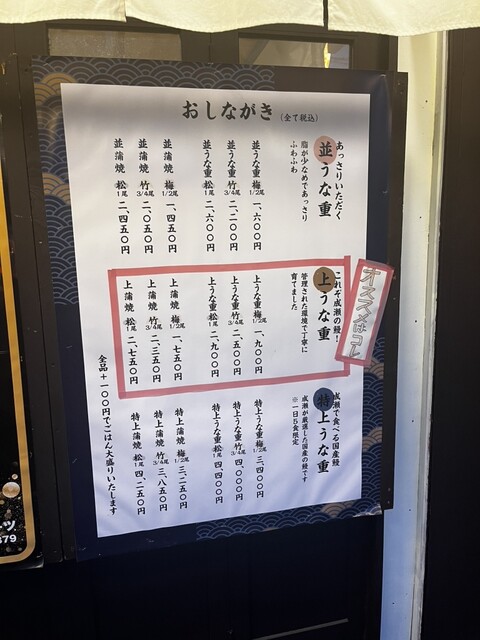 おしながき（全て税込）
あっさりいただく
並うな重
脂が少なめであっさり
ふわふわ
並うな重 梅 1/2尾 一、六〇〇円
並うな重 竹 3/4尾 二、二〇〇円
並うな重 松 1尾 二、六〇〇円
並蒲焼 梅 1/2尾 一、四五〇円
並蒲焼 竹 3/4尾 二、〇五〇円
並蒲焼 松 1尾 二、四五〇円
オススメはコレ
これぞ成瀬の鰻！
上うな重
管理された環境で丁寧に
育てました
上うな重 梅 1/2尾 一、九〇〇円
上うな重 竹 3/4尾 二、五〇〇円
上うな重 松 1尾 二、九〇〇円
上蒲焼 梅 1/2尾 一、七五〇円
上蒲焼 竹 3/4尾 二、三五〇円
上蒲焼 松 1尾 二、七五〇円
成瀬で食べる国産鰻
特上うな重
成瀬が厳選した国産の鰻です
※一日5食限定
特上うな重 梅 1/2尾 三、四〇〇円
特上うな重 竹 3/4尾 四、〇〇〇円
特上うな重 松 1尾 四、四〇〇円
特上蒲焼 梅 1/2尾 三、二五〇円
特上蒲焼 竹 3/4尾 三、八五〇円
特上蒲焼 松 1尾 四、二五〇円
全品＋一〇〇円でごはん大盛りいたします
ツ
679